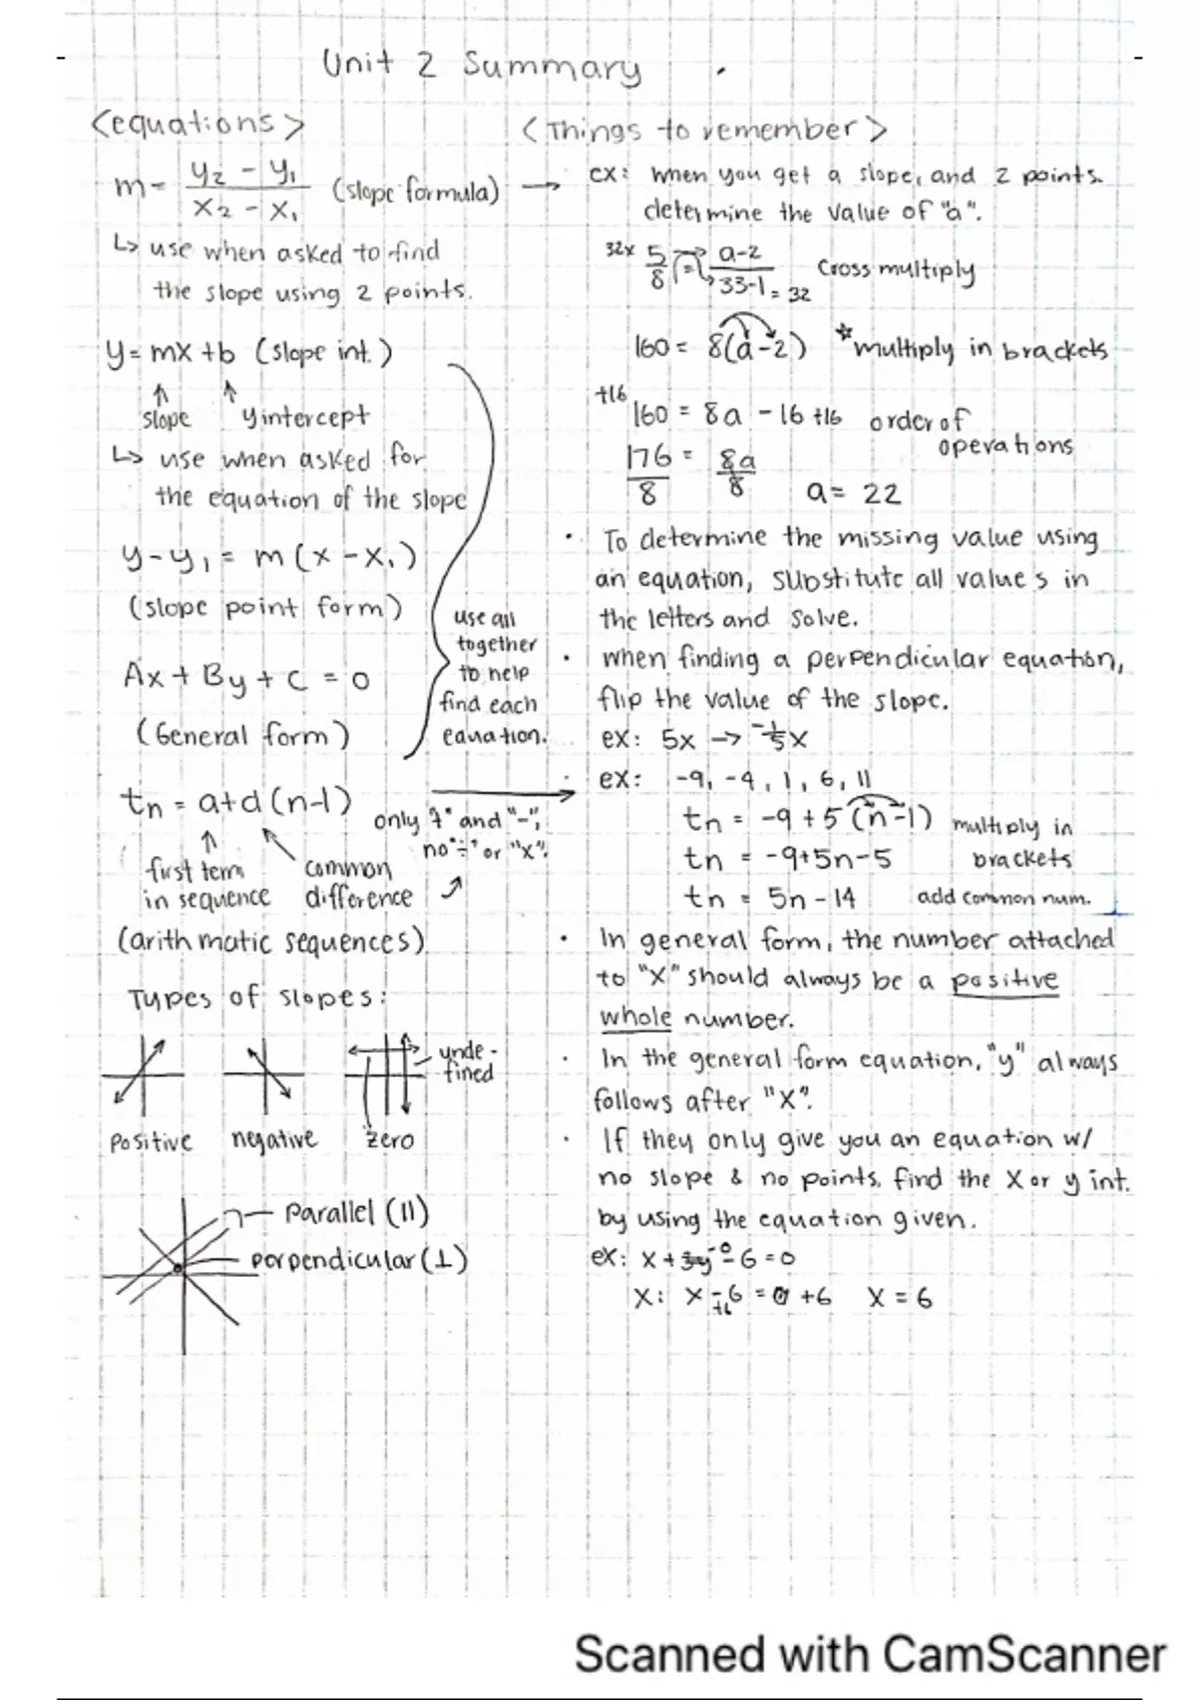 Unit 2 Summary
<equations>
m = y₂ - y₁ / x₂ - x₁ (slope formula) →
↳ use when asked to find
the slope using 2 points.
y = mx + b (slope int.)
↑ ↑
slope y intercept
↳ use when asked for
the equation of the slope
y - y₁ = m(x - x₁)
(slope point form)
Ax + By + C = 0
(General form)
use all
together
to help
find each
equation.
tn = a+d(n-1)
first term
in sequence
common
difference
only "+" and "-",
no "÷" or "x".
(arithmatic sequences)
Types of slopes:
positive negative zero
unde-
fined
Parallel (||)
perpendicular (⊥)
<Things to remember>
ex: when you get a slope, and 2 points.
determine the value of "a".
32x 5/8 = a-2 / 33-1 = 32 Cross multiply
160 = 8(a-2) *multiply in brackets
+16 160 = 8a - 16 +16 order of
operations
176/8 = 8a/8 a = 22
· To determine the missing value using
an equation, substitute all values in
the letters and solve.
· when finding a perpendicular equation,
flip the value of the slope.
ex: 5x → -1/5x
· ex: -9, -4, 1, 6, 11
tn = -9 + 5(n-1) multiply in
brackets
tn = -9+5n-5
tn = 5n-14 add common num.
· In general form, the number attached
to "X" should always be a positive
whole number.
· In the general form equation, "y" always
follows after "X".
· If they only give you an equation w/
no slope & no points, find the x or y int.
by using the equation given.
ex: x + 3y - 6 = 0
X: x - 6 = 0 + 6 X = 6
+6
Scanned with CamScanner